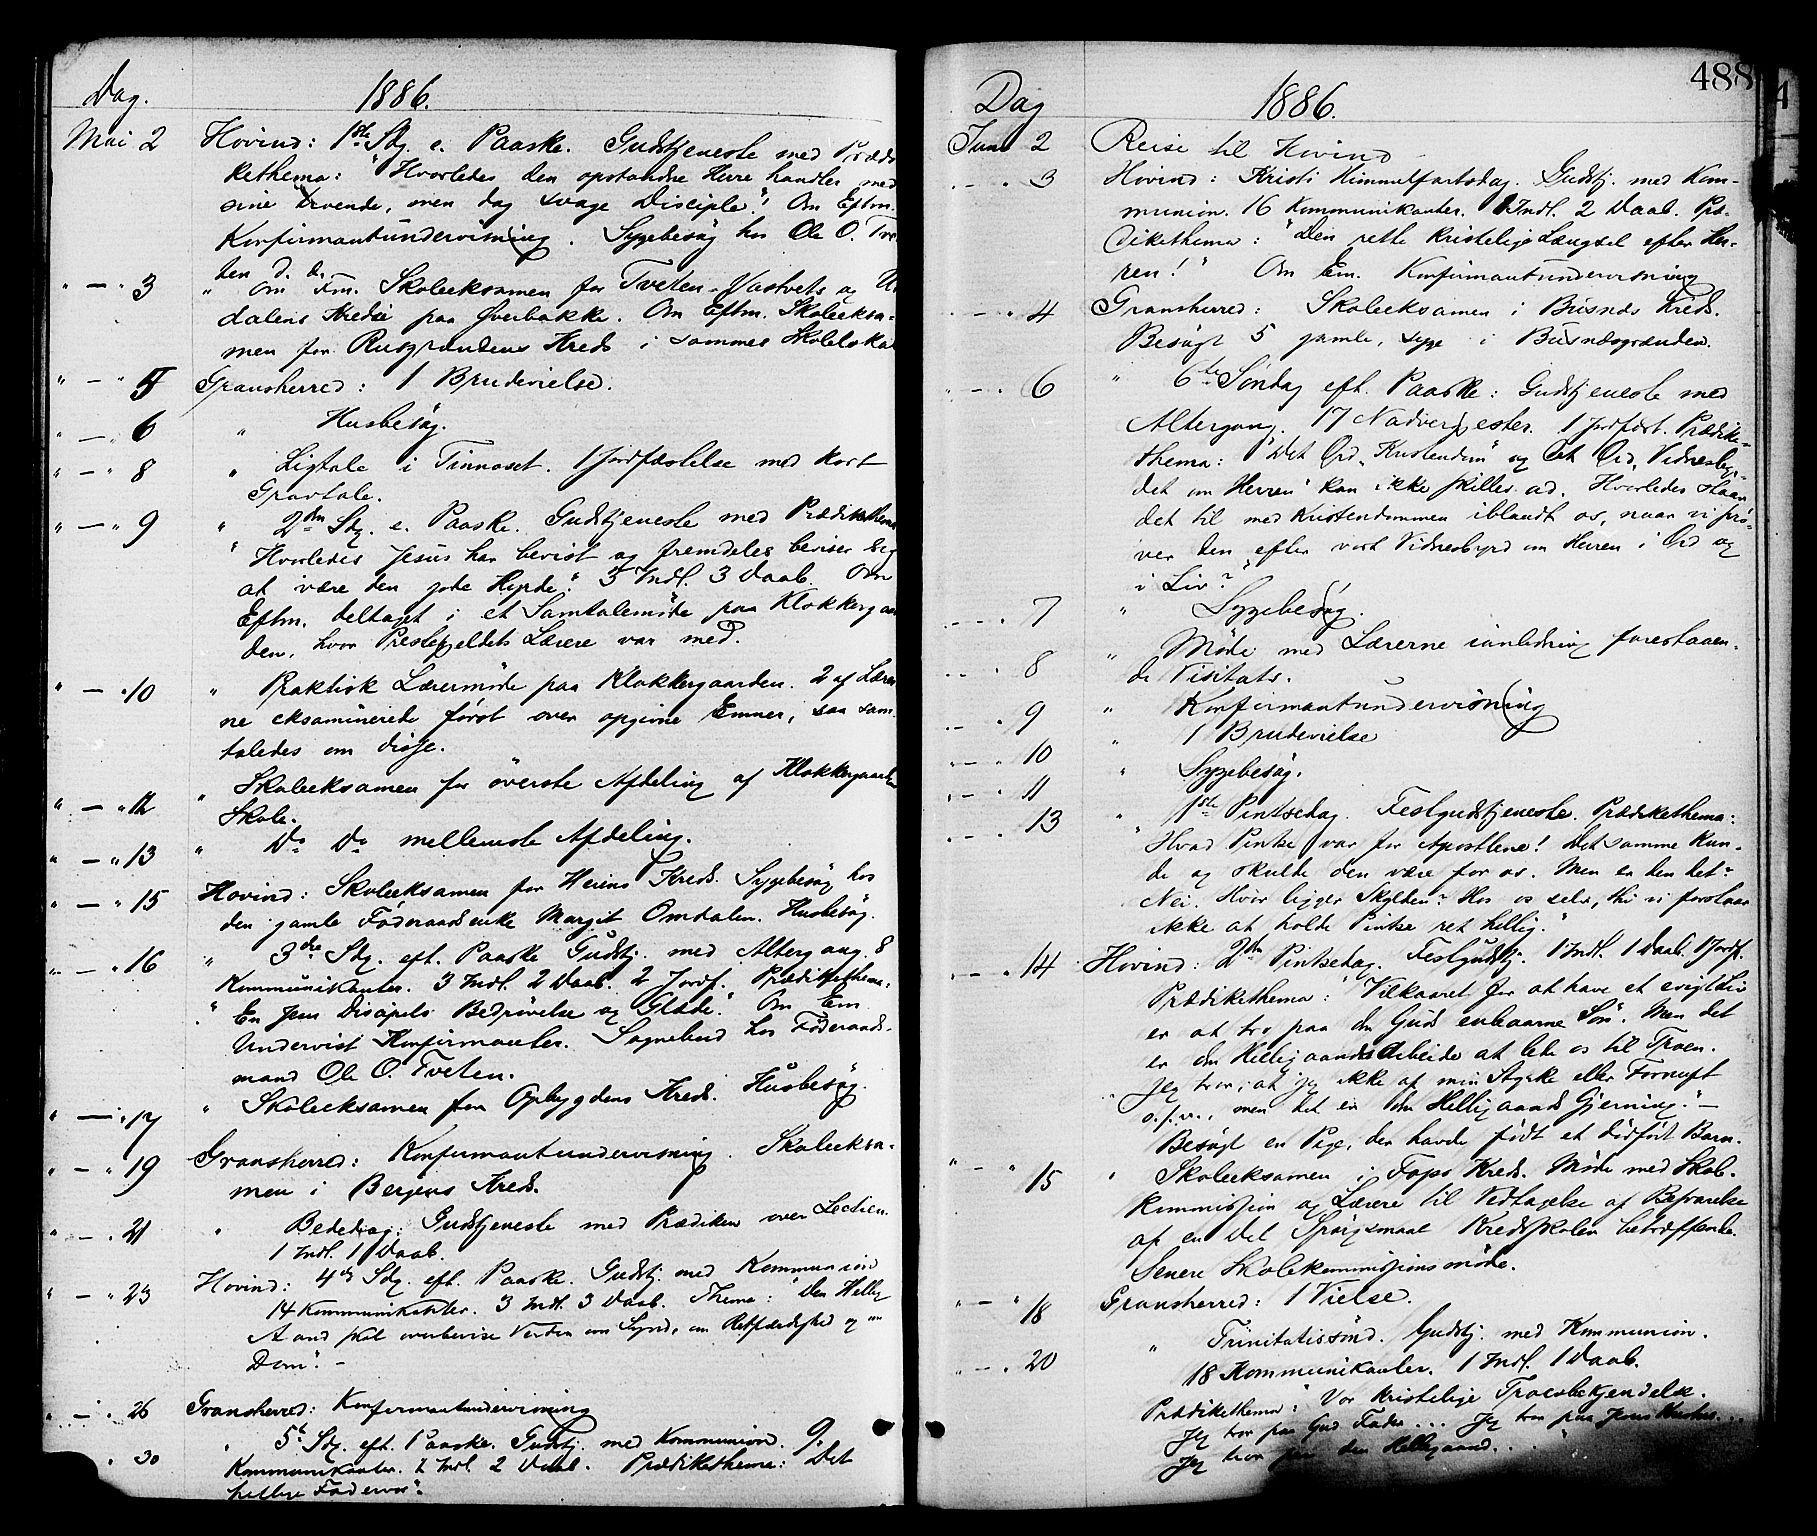 Dag. 1886.
Mai 2 Hovind: 1ste Sdg. e. Paaske. Gudstjeneste med Prædi
kethema: "Hvorledes den opstandne Herre handler med
sine troende, men dog svage Disciple." Om Eftm.
Konfirmantundervisning. Sygebesøg hos Ole O. Tve
ten d. æ.
" — " 3 " Om Fm. Skoleeksamen for Tveten-Vastveits og
dalens Kredse paa Øverbakke. Om Eftm. Skoleeksa-
men for Rusgrændens Kreds i sammes Skolelokal
" — " 5 Gransherred: 1 Brudevielse.
" — " 6 " Husbesøg.
" — " 8 " Ligtale i Tinnoset. 1 Jordfæstelse med kort
Gravtale.
" — " 9 " 2den Sdg. e. Paaske. Gudstjeneste med Prædikethema
"Hvorledes Jesus har bevist og fremdeles beviser sig
at være den gode Hyrde." 3 Indl. 3 Daab. Om
Eftm. deltaget i et Samtalemøde paa Klokkergaar
den, hvor Prestegjeldets Lærere var med.
" — " 10 " Praktisk Lærermøde paa Klokkergaarden. 2 af Lærer
ne eksaminerede først over opgivne Emner, saa sam-
taledes om disse.
" — " 12 " Skoleeksamen for øverste Afdeling af Klokkergaarden
Skole.
" — " 13 " Do Do mellemste Afdeling.
" — " 15 Hovind: Skoleeksamen for Heiens Kreds. Sygebesøg hos
den gamle Føderaadsenke Margit Omdalen. Husbesøg.
" — " 16 " 3die Sdg. eft. Paaske Gudstj. med Altergang. 8
Kommunikanter. 3 Indl. 2 Daab. 2 Jordf. Prædikethema:
"En Jesu Discipels Bedrøvelse og Glæde." Om Em.
Undervist Konfirmanter. Sognebud hos Føderaads-
mand Ole O. Tveten.
" — " 17 " Skoleeksamen for Opbygdens Kreds. Husbesøg.
" — " 19 Gransherred: Konfirmantundervisning. Skoleeksa-
men i Bergens Kreds.
" — " 21 " Bededag: Gudstjeneste med Prædiken over Lectien.
1 Indl. 1 Daab.
" — " 23 Hovind: 4de Sdg. eft. Paaske. Gudstj. med Kommunion
14 Kommunikanter. 3 Indl. 3 Daab. Thema: "Den Hellig
Aand skal overbevise Verden om Synd, om Retfærdighed og om
Dom". —
" — " 26 Gransherred: Konfirmantundervisning
" 30 " 5te Sdg. eft. Paaske. Gudstj. med Kommunion. 9
Kommunikanter. 2 Indl. 2 Daab. Prædikethema: "Det
hellige Fadervor".
488
Dag 1886.
Juni 2 Reise til Hovind
" — " 3 Hovind: Kristi Himmelfartsdag. Gudstj. med Kom-
munion. 16 Kommunikanter. 2 Indl. 2 Daab. Præ-
dikethema: "Den rette kristelige Længsel efter Her-
ren!" Om Em. Konfirmantundervisning
" — " 4 Gransherred: Skoleeksamen i Busnæs Kreds.
Besøgt 5 gamle, syge i Busnæsgrænden.
" — " 6 " 6te Søndag eft. Paaske: Gudstjeneste med
Altergang. 17 Nadvergjester. 1 Jordfæst. Prædike-
thema: "Det Ord "Kristendom" og det Ord "Vidnesbyr-
det om Herren" kan ikke skilles ad. Hvorledes staar
det til med Kristendommen iblandt os, naar vi prø-
ver den efter vort Vidnesbyrd om Herren i Ord og
i Liv?"
" — " 7 " Sygebesøg.
" — " 8 " Møde med Lærerne ianledning forestaaen-
de Visitats.
" — " 9 " Konfirmantundervisning
" — " 10 " 1 Brudevielse
" — " 11 " Sygebesøg.
" — " 13 " 1ste Pintsedag. Festgudstjeneste. Prædikethema:
"Hvad Pintse var for Apostlene! Det samme kun-
de og skulde den være for os. Men er den det?
Nei. Hvor ligger Skylden? Hos os selv, thi vi forstaar
ikke at holde Pintse ret hellig."
" — " 14 Hovind: 2den Pintsedag. Festgudstj. 1 Indl. 1 Daab. 1 Jordf.
Prædikethema: "Vilkaaret for at have et evigt Liv
er at tro paa den Guds enbaarne Søn". Men det
er den Helligaands Arbeide at lede os til Troen.
"Jeg tror, at jeg ikke af min Styrke eller Fornuft
o.s.v., men det er den Helligaands Gjerning." —
Besøgt en Pige, der havde født et dødfødt Barn.
" — " 15 " Skoleeksamen i Fosss Kreds. Møde med Skole-
kommission og Lærere til Vedtagelse af Besvarelse
af en Del Spørgsmaal Kredsskolen betræffende.
Senere Skolekommissionsmøde.
" — " 18 Gransherred: 1 Vielse.
" — " 20 " Trinitatissønd. Gudstj. med Kommunion.
18 Kommunikanter. 1 Indl. 1 Daab.
Prædikethema: "Vor kristelige Troesbekjendelse.
Jeg tror paa Gud Fader ... Jeg tror paa Jesus Kristus...
Jeg tror paa den Helligaand....